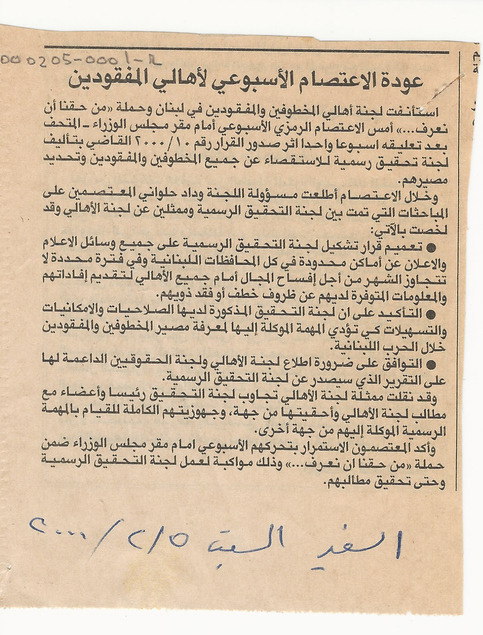 000205-0001-R
عودة الاعتصام الأسبوعي لأهالي المفقودين
استأنفت لجنة أهالي المخطوفين والمفقودين في لبنان وحملة «من حقنا أن
نعرف...» أمس الاعتصام الرمزي الأسبوعي أمام مقر مجلس الوزراء - المتحف
بعد تعليقه اسبوعا واحدا اثر صدور القرار رقم ٢٠٠٠/١٠ القاضي بتأليف
لجنة تحقيق رسمية للاستقصاء عن جميع المخطوفين والمفقودين وتحديد
مصيرهم.
وخلال الاعتصام أطلعت مسؤولة اللجنة وداد حلواني المعتصمين على
المباحثات التي تمت بين لجنة التحقيق الرسمية وممثلين عن لجنة الأهالي وقد
لخصت بالآتي:
● تعميم قرار تشكيل لجنة التحقيق الرسمية على جميع وسائل الاعلام
والاعلان عن أماكن محدودة في كل المحافظات اللبنانية وفي فترة محددة لا
تتجاوز الشهر من أجل إفساح المجال أمام جميع الأهالي لتقديم إفاداتهم
والمعلومات المتوفرة لديهم عن ظروف خطف أو فقد ذويهم.
● التأكيد على ان لجنة التحقيق المذكورة لديها الصلاحيات والامكانيات
والتسهيلات كي تؤدي المهمة الموكلة إليها لمعرفة مصير المخطوفين والمفقودين
خلال الحرب اللبنانية.
● التوافق على ضرورة اطلاع لجنة الأهالي ولجنة الحقوقيين الداعمة لها
على التقرير الذي سيصدر عن لجنة التحقيق الرسمية.
وقد نقلت ممثلة لجنة الأهالي تجاوب لجنة التحقيق رئيسا وأعضاء مع
مطالب لجنة الأهالي وأحقيتها من جهة، وجهوزيتهم الكاملة للقيام بالمهمة
الرسمية الموكلة إليهم من جهة أخرى.
وأكد المعتصمون الاستمرار بتحركهم الأسبوعي امام مقر مجلس الوزراء ضمن
حملة «من حقنا ان نعرف...» وذلك مواكبة لعمل لجنة التحقيق الرسمية
وحتى تحقيق مطالبهم.
السفير السبت ٢/٥/٢٠٠٠